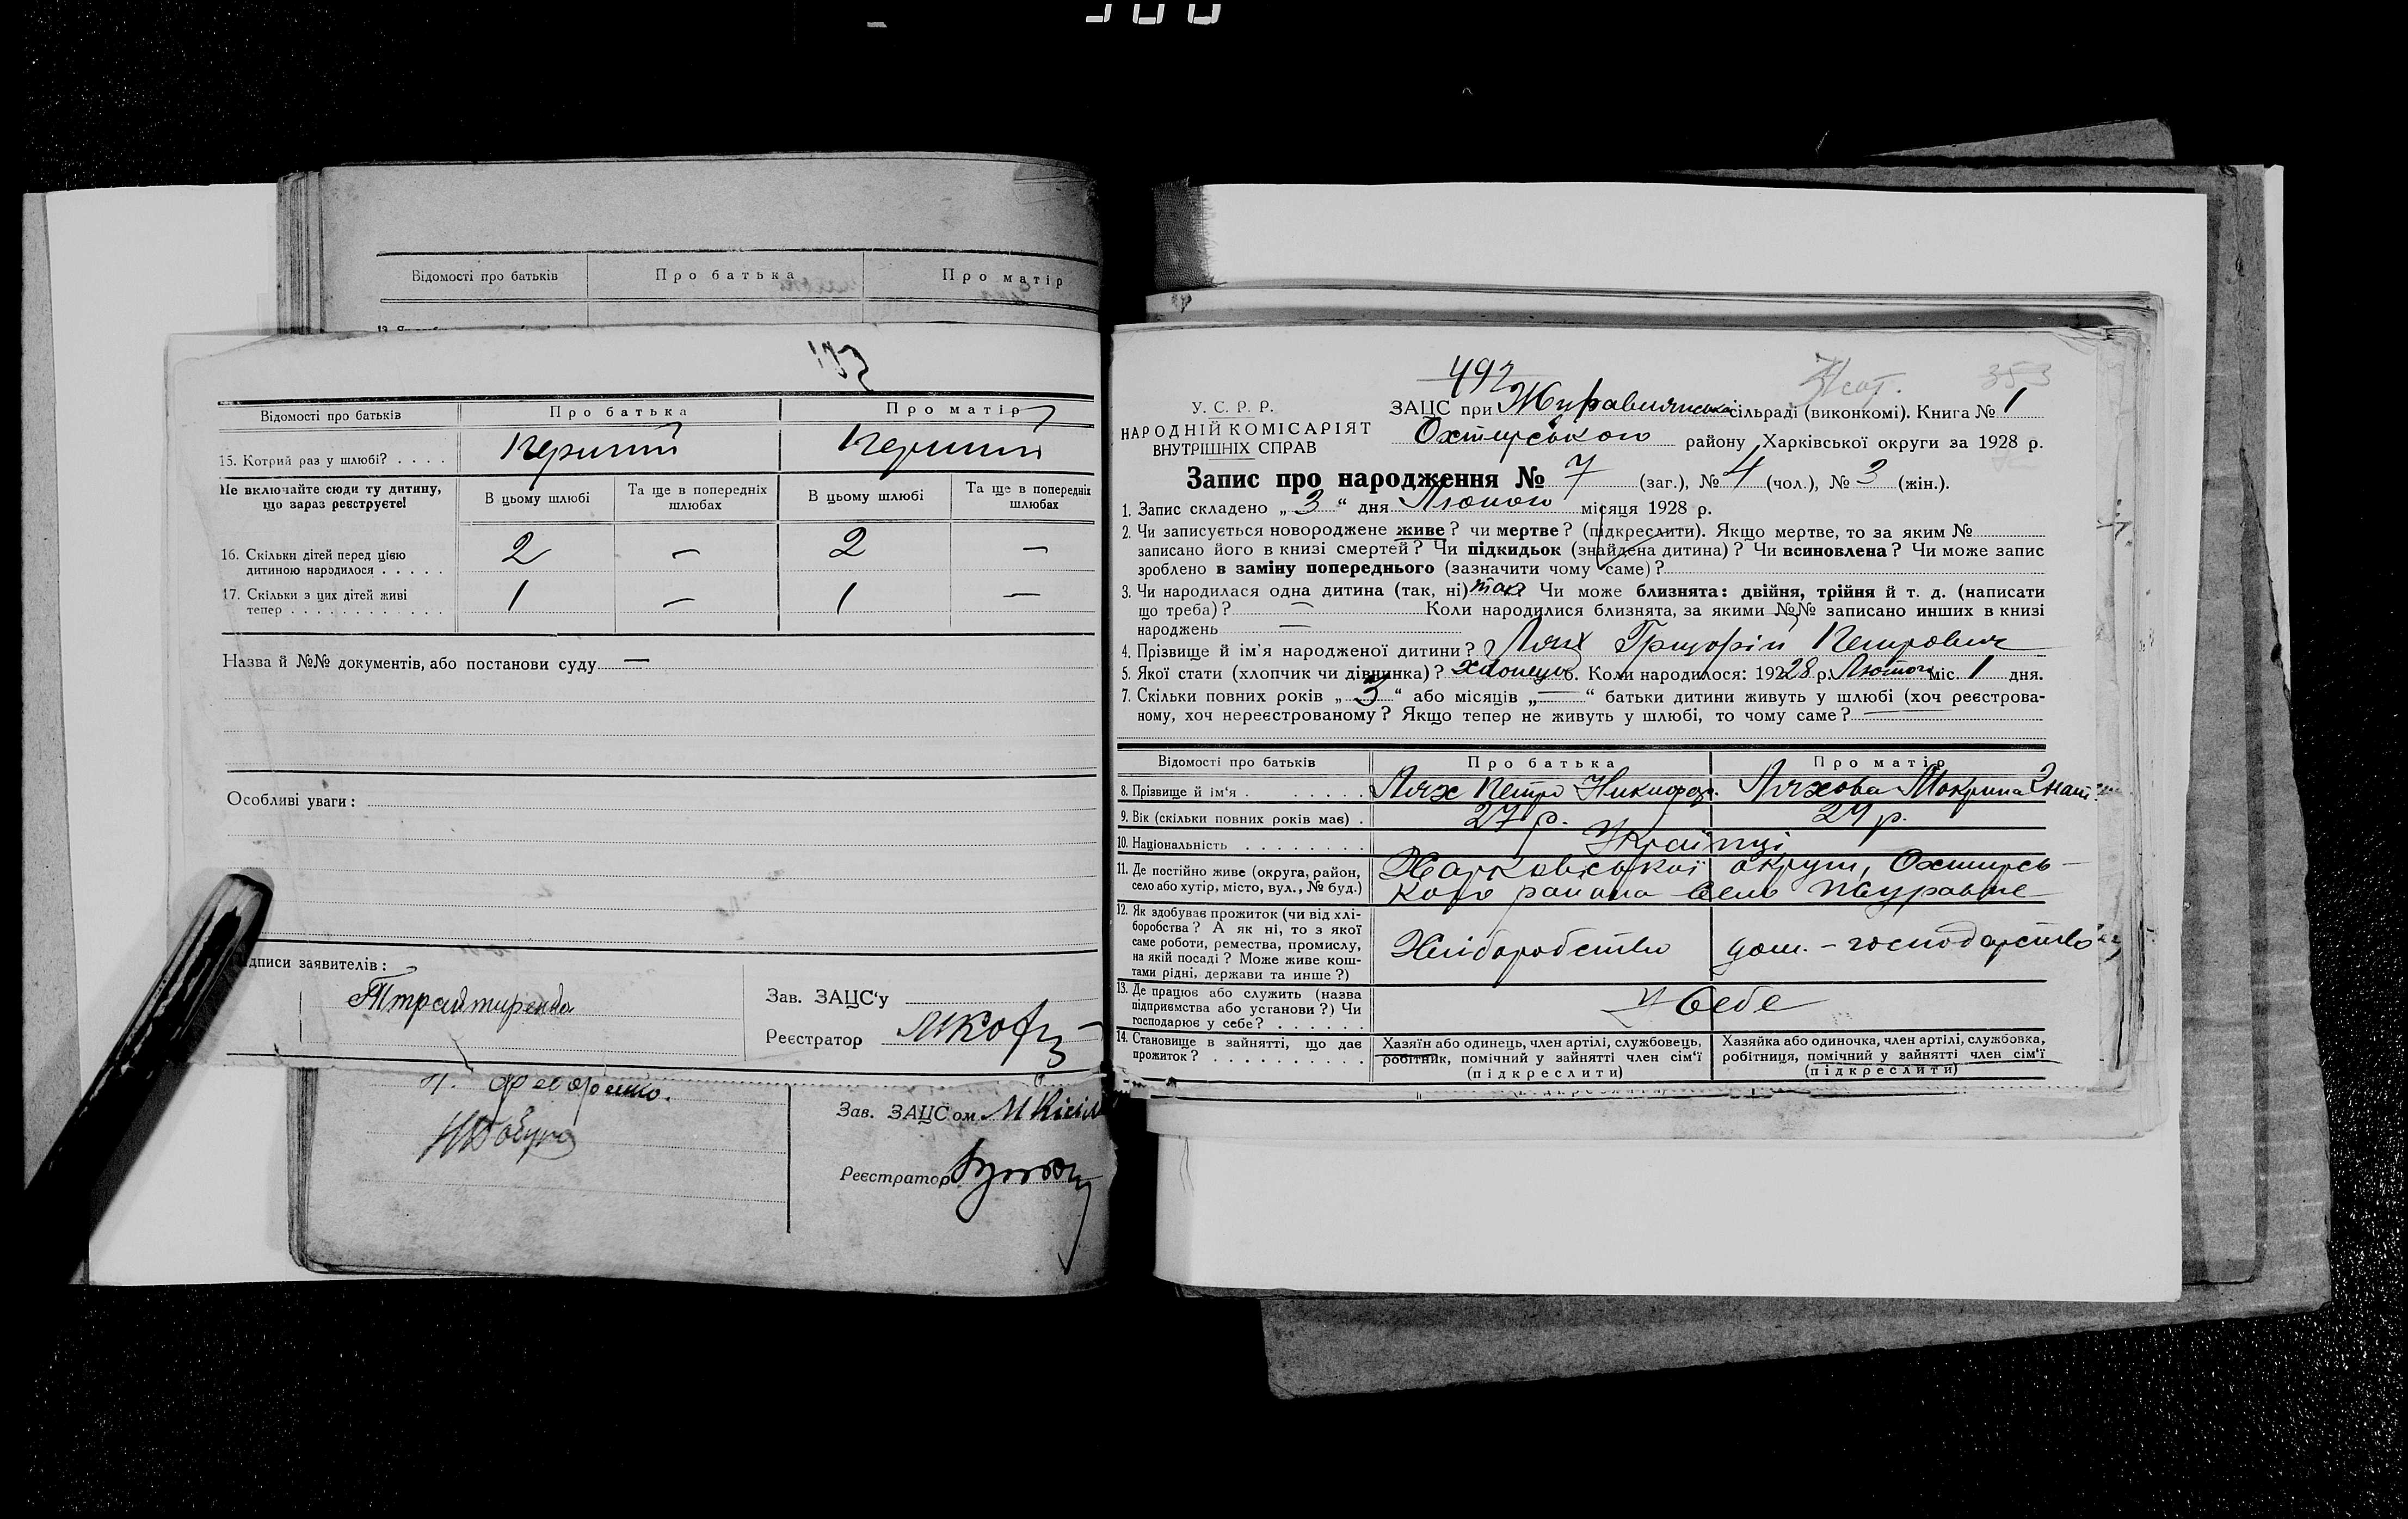 Відомості про батьків Про батька Про матір
Відомості про батьків Про батька Про матір
15. Котрий раз у шлюбі? . . . . Перший Перший
Не включайте сюди ту дитину, що зараз реєструєте!
В цьому шлюбі Та ще в попередніх шлюбах В цьому шлюбі Та ще в попередніх шлюбах
16. Скільки дітей перед цією
дитиною народилося . . . . . 2 — 2 —
17. Скільки з цих дітей живі
тепер . . . . . . . . . . . . 1 — 1 —
Назва й №№ документів, або постанови суду —
Особливі уваги:
дписи заявителів:
Зав. ЗАЦС‘у
Реєстратор
Зав. ЗАЦСом
Реєстратор
492 353
У. С. Р. Р.
НАРОДНІЙ КОМІСАРІЯТ
ВНУТРІШНІХ СПРАВ
ЗАЦС при Журавлянській сільраді (виконкомі). Книга № 1
Охтирського району Харківської округи за 1928 р.
Запис про народження № 7 (заг.), № 4 (чол.), № 3 (жін.).
1. Запис складено „ 3 “ дня Лютого місяця 1928 р.
2. Чи записується новороджене живе? чи мертве? (підкреслити). Якщо мертве, то за яким №
записано його в книзі смертей? Чи підкидьок (знайдена дитина)? Чи всиновлена? Чи може запис
зроблено в заміну попереднього (зазначити чому саме)?
3. Чи народилася одна дитина (так, ні) так Чи може близнята: двійня, трійня й т. д. (написати
що треба)? — Коли народилися близнята, за якими №№ записано инших в книзі
народжень —
4. Прізвище й ім'я народженої дитини? Лях Григорій Петрович
5. Якої стати (хлопчик чи дівчинка)? хлопець 6. Коли народилося: 1928 р. Лютого міс. 1 дня.
7. Скільки повних років „ 3 “ або місяців „ — “ батьки дитини живуть у шлюбі (хоч реєстрова-
ному, хоч нереєстрованому? Якщо тепер не живуть у шлюбі, то чому саме? —
Відомості про батьків Про батька Про матір
8. Прізвище й ім‘я . . . . . . . Лях Петро Никифор. Ляхова Мокрина Гнат
9. Вік (скільки повних років має) . 27 р. 29 р.
10. Національність . . . . . . . . Українці
11. Де постійно живе (округа, район,
село або хутір, місто, вул., № буд.)
Харковської округи, Охтирсь-
кого района село Журавне
12. Як здобуває прожиток (чи від хлі-
боробства? А як ні, то з якої
саме роботи, ремества, промислу,
на якій посаді? Може живе кош-
тами рідні, держави та инше?)
Хліборобство дом. - господарство
13. Де працює або служить (назва
підприємства або установи?) Чи
господарює у себе? . . . . . .
У себе
14. Становище в зайнятті, що дає
прожиток? . . . . . . . . . .
Хазяїн або одинець, член артілі, службовець,
робітник, помічний у зайнятті член сім‘ї
(підкреслити)
Хазяйка або одиночка, член артілі, службовка,
робітниця, помічний у зайнятті член сім‘ї
(підкреслити)